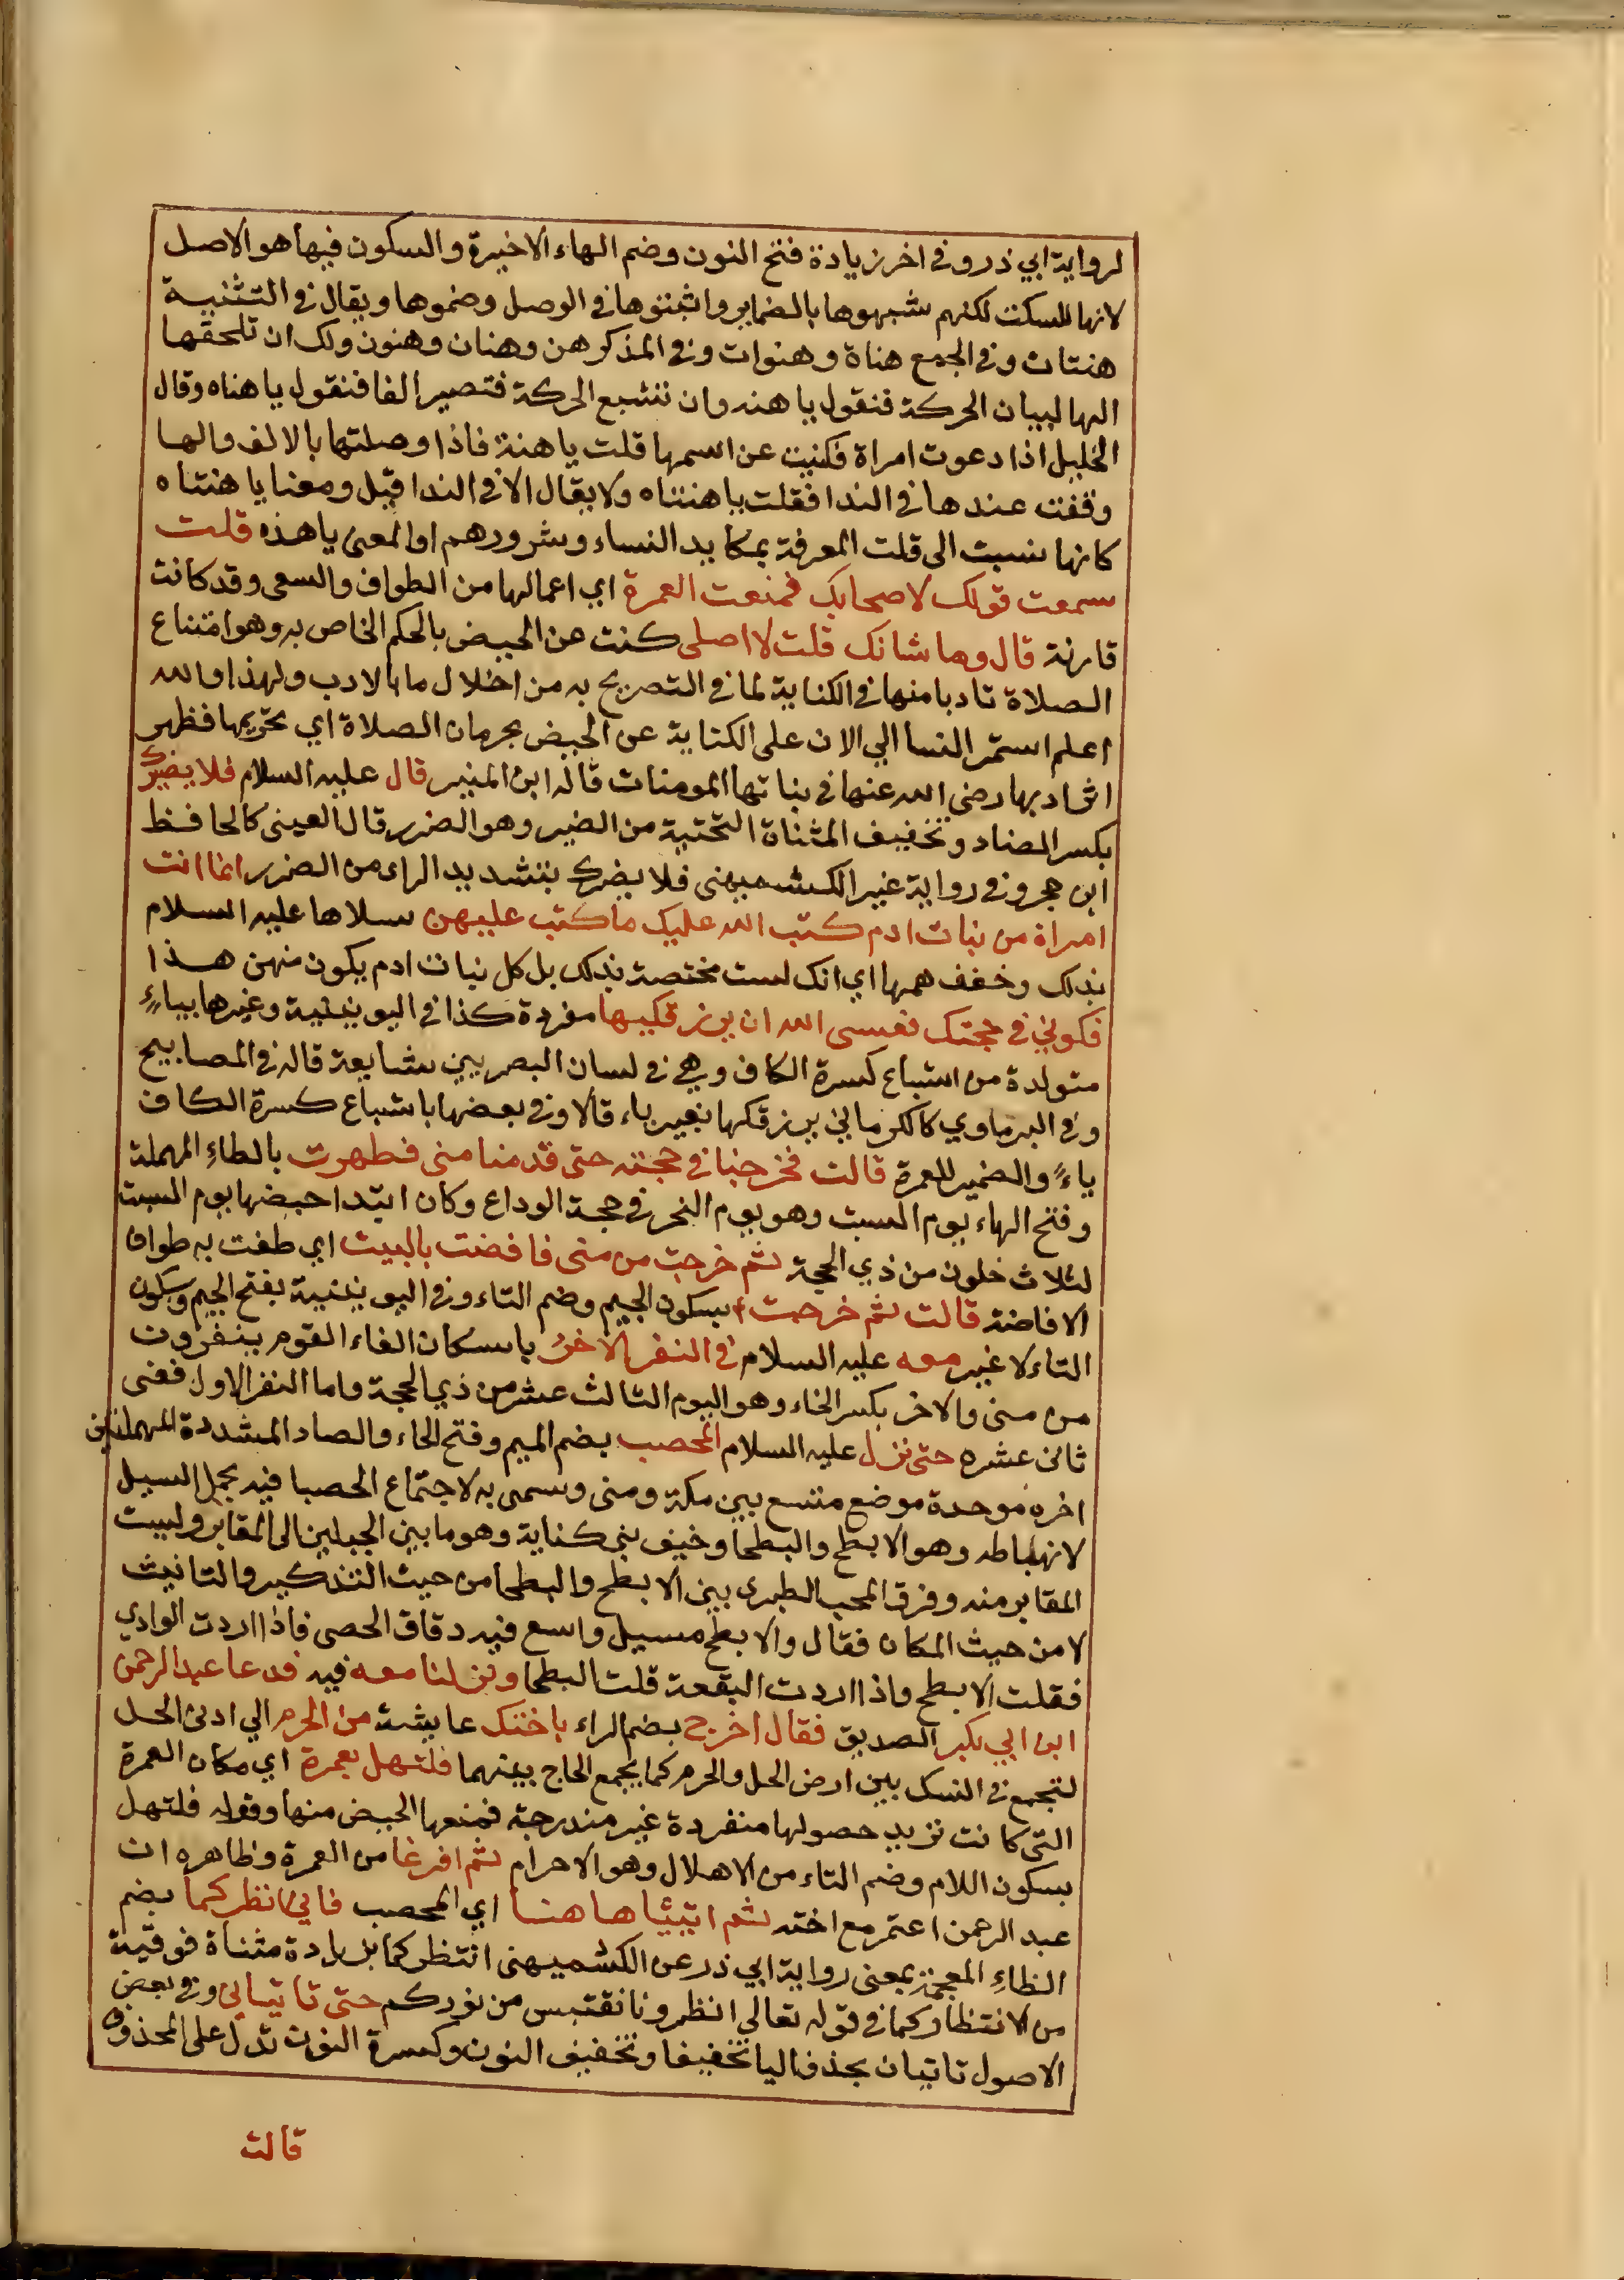 لرواية ابي ذر وفي اخر زيادة فتح النون وضم الهاء الاخيرة والسكون فيها هو الاصل
لانها للسكت لكنهم شبهوها بالضماير واثبتوها في الوصل وضموها ويقال في التثنية
هنتان وفي الجمع هناة وهنوات وفي المذكر هن وهنان وهنون ولك ان تلحقها
الها لبيان الحركة فتقول يا هنه وان تشبع الحركة فتصير الفا فتقول يا هناه وقال
الخليل اذا دعوت امراة فكنيت عن اسمها قلت يا هنة فاذا وصلتها بالالف والها
وقفت عندها في الندا فقلت يا هنتاه ولا يقال الا في الندا قيل ومعنا يا هنتاه
كانها نسبت الى قلت المعرفة بمكايد النساء وشرورهم او المعنى يا هذه قلت
سمعت قولك لاصحابك فمنعت العمرة اي اعمالها من الطواف والسعي وقد كانت
قارنة قال وما شانك قلت لا اصلي كنت عن الحيض بالحكم الخاص به وهو امتناع
الصلاة تادبا منها في الكناية لما في التصريح به من اخلال ما بالادب ولهذا والله
اعلم استمر النسا الي الان على الكناية عن الحيض بحرمان الصلاة اي تحريمها فظهر
اثر ادبها رضى الله عنها في بناتها المومنات قاله ابن المنير قال عليه السلام فلا يضيرك
بكسر الضاد وتخفيف المثناة التحتية من الضير وهو الضرر قال العينى كالحافظ
ابن حجر وفي رواية غير الكشميهني فلا يضرك بتشديد الراء من الضرر انما انت
امراة من بنات ادم كتب الله عليك ما كتب عليهن سلاها عليه السلام
بذلك وخفف همها اي انك لست مختصة بذلك بل كل بنات ادم يكون منهن هذا
فكوني في حجتك فعسى الله ان يرزقكيها مفردة كذا في اليونينية وغيرها بياءٍ
متولدة من اشباع كسرة الكاف وهي في لسان البصريين شايعة قاله في المصابيح
وفي البرماوي كالكرماني يرزقكها بغير ياء قالا وفي بعضها باشباع كسرة الكاف
ياءً والضمير للعمرة قالت فخرجنا في حجته حتى قدمنا منى فطهرت بالطاءِ المهملة
وفتح الهاء يوم السبت وهو يوم النحر في حجة الوداع وكان ابتدا حيضها يوم السبت
لثلاث خلون من ذي الحجة ثم خرجت من منى فافضت بالبيت اي طفت به طواف
الافاضة قالت ثم خرجت بسكون الجيم وضم التاء وفي اليونينية بفتح الجيم وسكون
التاء لا غير معه عليه السلام في النفر الاخر باسكان الفاء القوم ينفرون
من منى والاخر بكسر الخاء وهو اليوم الثالث عشر من ذي الحجة واما النفر الاول ففي
ثاني عشره حتى نزل عليه السلام المحصب بضم الميم وفتح الحاء والصاد المشددة المهملتين
اخره موحدة موضع متسع بين مكة ومنى وسمى به لاجتماع الحصبا فيه بحمل السيل
لانهباطه وهو الابطح والبطحا وخيف بني كناية وهو ما بين الجبلين الى المقابر وليست
المقابر منه وفرق المحب الطبرى بين الابطح والبطحا من حيث التذكير والتانيث
لا من حيث المكان فقال والابطح مسيل واسع فيه دقاق الحصى فاذا اردت الوادي
فقلت الابطح واذا اردت البقعة قلت البطحا ونزلنا معه فيه فدعا عبد الرحمن
ابن ابي بكر الصديق فقال اخرج بضم الراء باختك عايشة من الحرم الي ادنى الحل
لتجمع في النسك بين ارض الحل والحرم كما يجمع الحاج بينهما فلتهل بعمرة اي مكان العمرة
التى كانت تريد حصولها منفردة غير مندرجة فمنعها الحيض منها وقوله فلتهل
بسكون اللام وضم التاء من الاهلال وهو الاحرام ثم افرغا من العمرة وظاهره ان
عبد الرحمن اعتمر مع اخته ثم ايتيا هاهنا اي المحصب فاني انظركما بضم
الظاءِ المعجمة بمعنى رواية ابي ذر عن الكشميهنى انتظركما بزيادة مثناة فوقية
من الانتظار كما في قوله تعالى انظرونا نقتبس من نوركم حتى تاتياني وفي بعض
الاصول تاتيان بحذف اليا تخفيفا وتخفيف النون وكسرة النون تدل على المحذوف
قالت